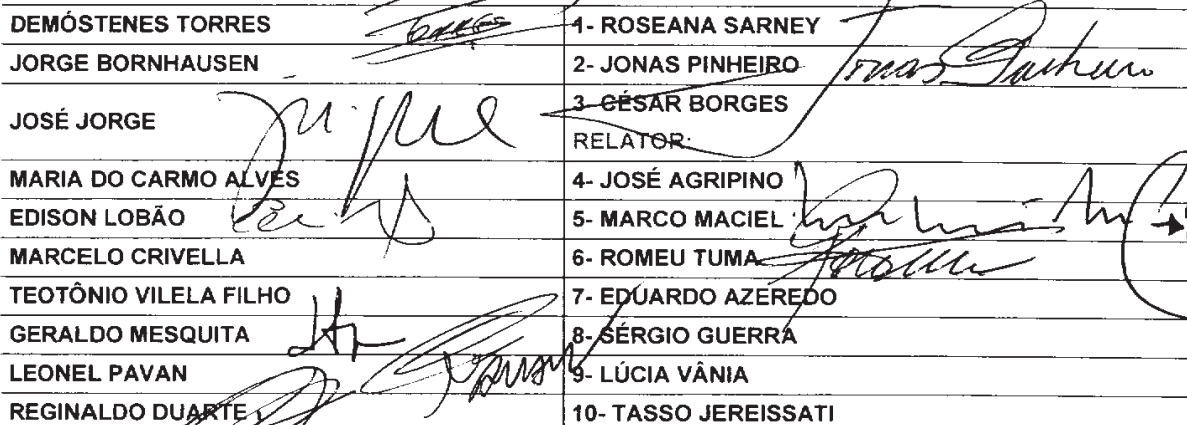 DEMÓSTENES TORRES
1- ROSEANA SARNEY
JORGE BORNHAUSEN
2- JONAS PINHEIRO Jonas Pinheiro
JOSÉ JORGE
3- CÉSAR BORGES
RELATOR:
MARIA DO CARMO ALVES
4- JOSÉ AGRIPINO
EDISON LOBÃO
5- MARCO MACIEL
MARCELO CRIVELLA
6- ROMEU TUMA
TEOTÔNIO VILELA FILHO
7- EDUARDO AZEREDO
GERALDO MESQUITA
8- SÉRGIO GUERRA
LEONEL PAVAN
9- LÚCIA VÂNIA
REGINALDO DUARTE
10- TASSO JEREISSATI